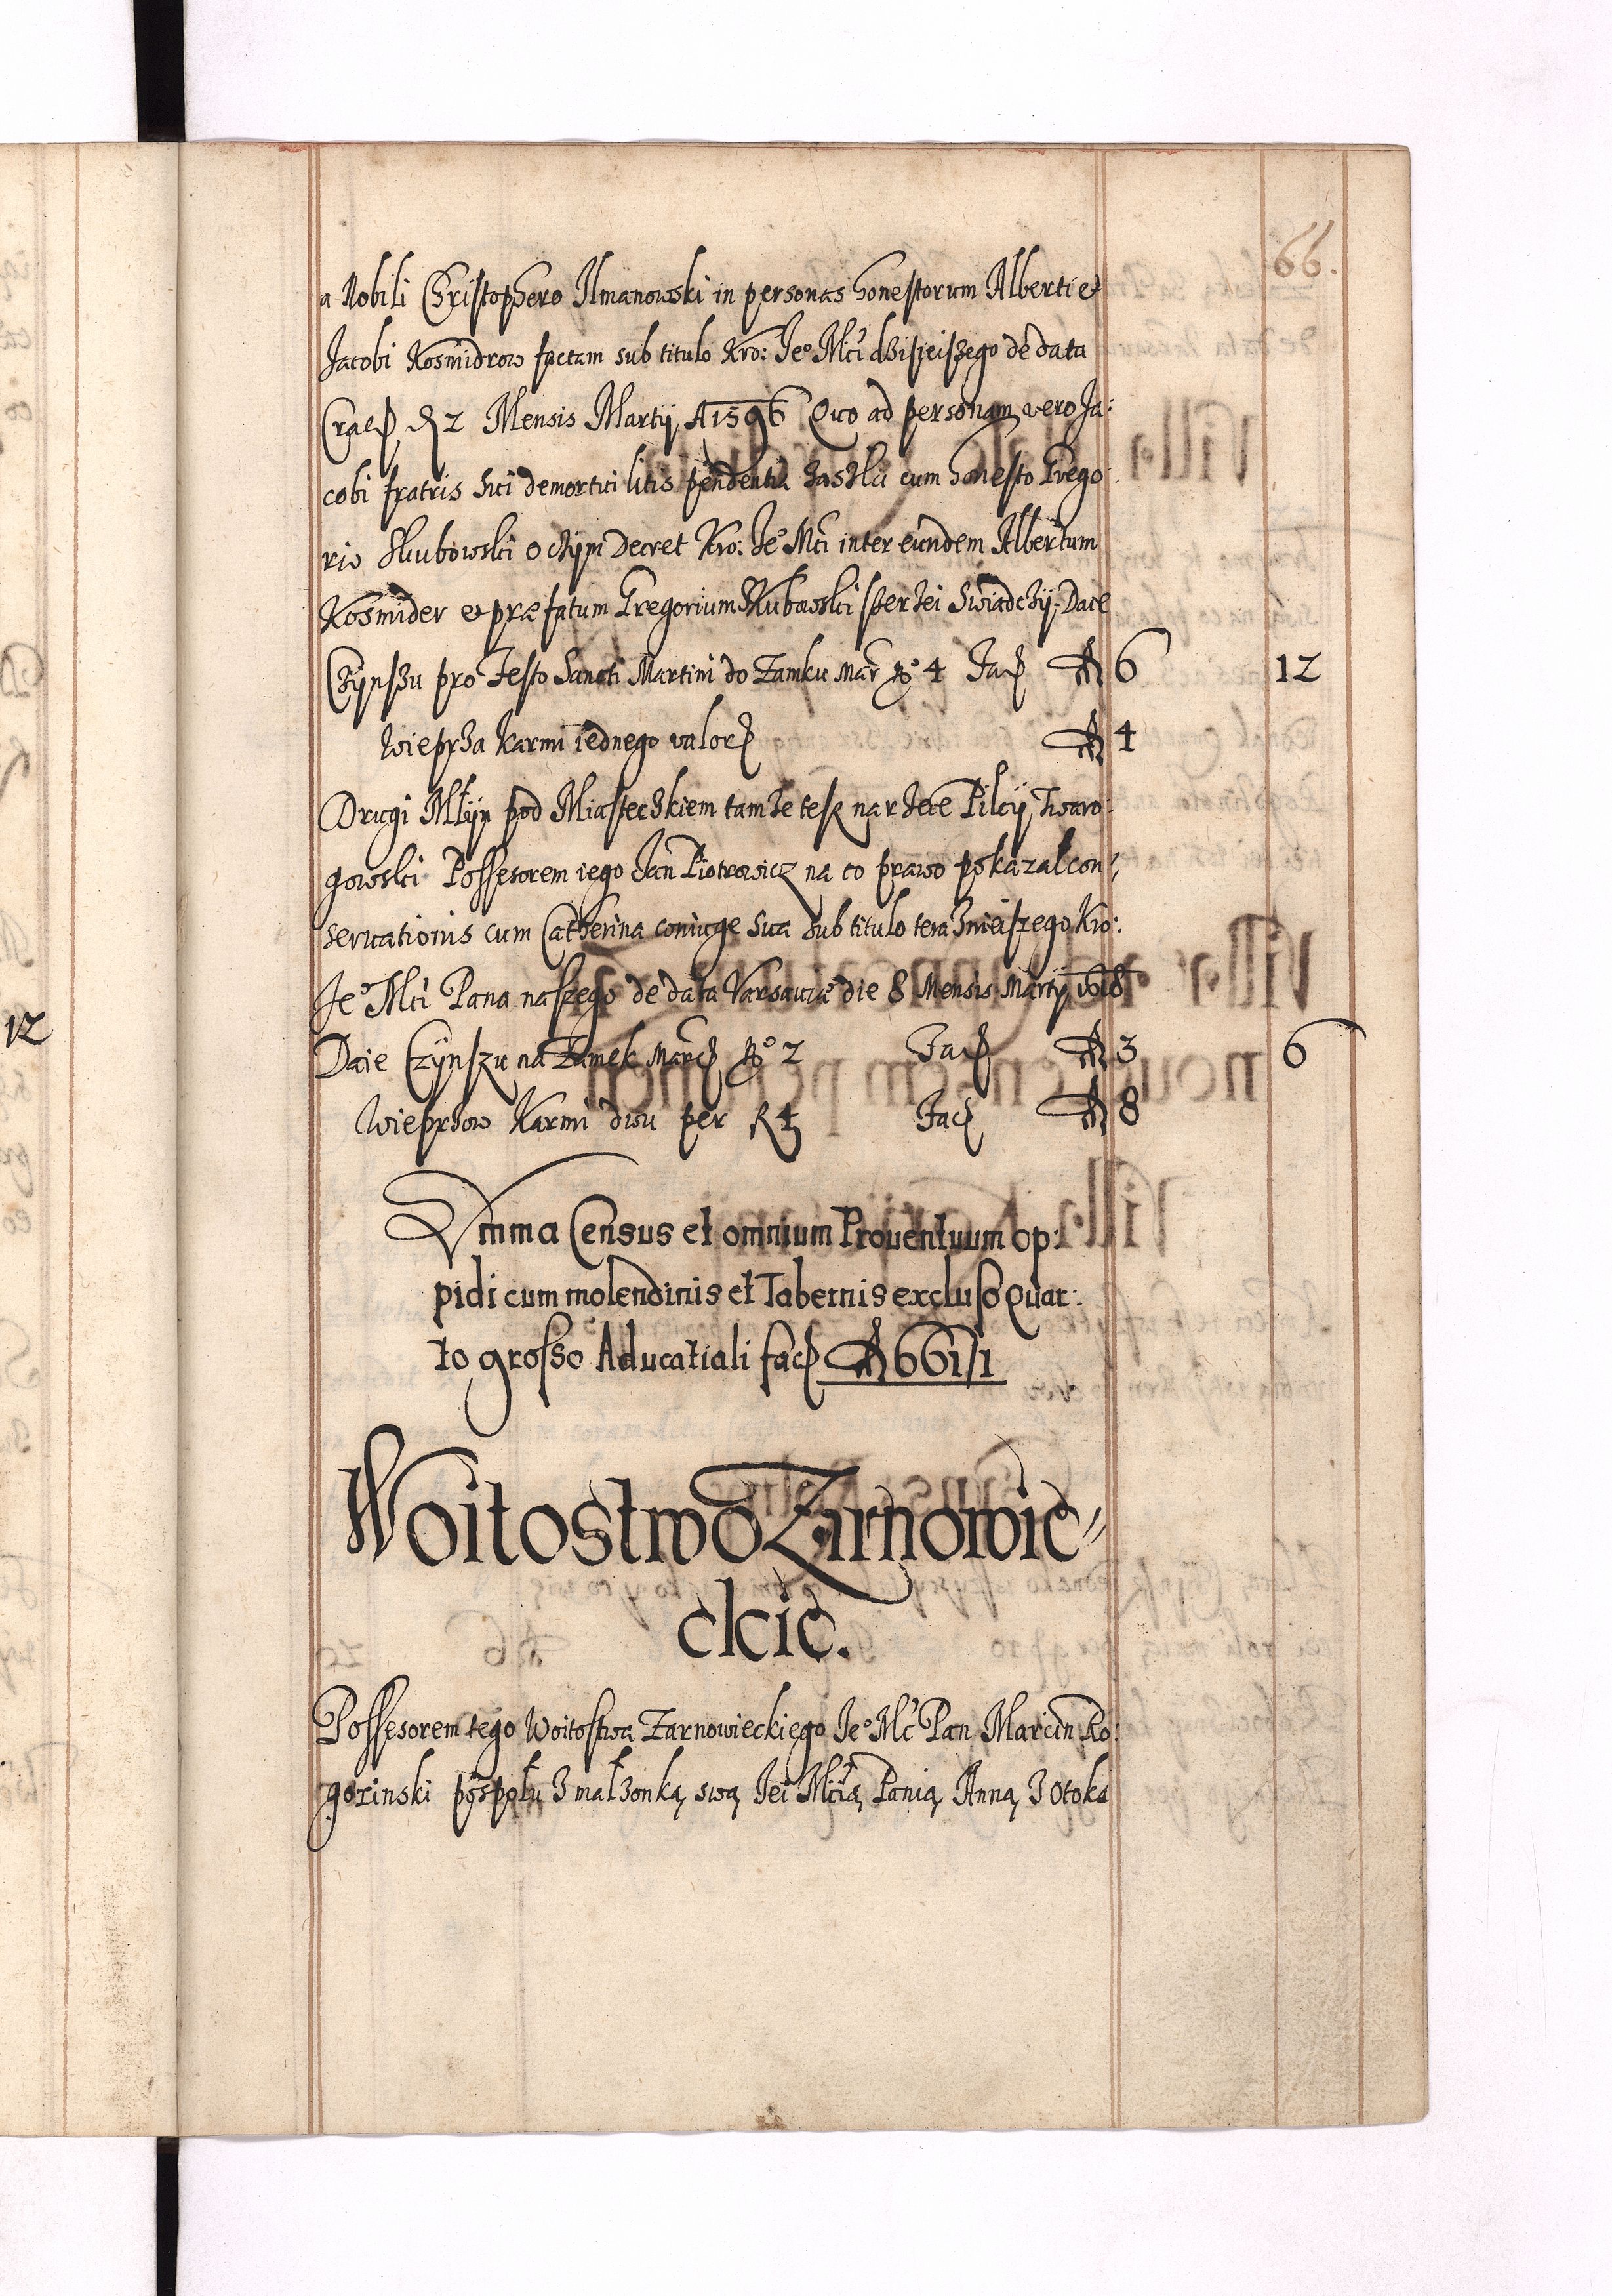 66.
a Nobili Christophero Ilmanowski in personas honestorum Alberti et
Jacobi Kosmidrow factam sub titulo Kro: Je° Mci dzisieiszego de data
Crac 2 Mensis Martij A 1596 Quo ad personam vero Ja:
cobi fratris sui demortui litis pendentia zaszla cum honesto Grego:
rio Skubowski o czym Decret Kro: Je° Mci inter eundem Albertum
Kosmider et præfatum Gregorium Skubowski szerzei swiadczy. Daie
Czynszu pro Festo Sancti Martini do Zamku Mar N° 4 Fac 6 12
Wieprza karmi iednego valor 4
Drugi Młyn pod Miasteczkiem tamze tesz na rzece Pilcy, Twaro:
gowski Possesorem iego Jan Piotrowicz na co prawo pokazal con:
servationis cum Catherina coniuge sua sub titulo teraznieiszego Kro:
Je° Mci Pana naszego de data Varsaviæ die 8 Mensis Martij
Daie Czynszu na Zamek Marc N° 2 Fac 3 6
Wieprzow Karmi dwu per 4 Fac 8
Summa Census et omnium Proventuum op:
pidi cum molendinis et Tabernis excluso Quar:
to grosso Aducatiali fac 661/1
Woitostwo Zarnowie-
ckie.
Possesorem tego Woitostwa Zarnowieckiego Je° Mc Pan Marcin Ro:
gozinski pospołu z małzonką swą Jei Mcią Panią Anną z Otoka
12